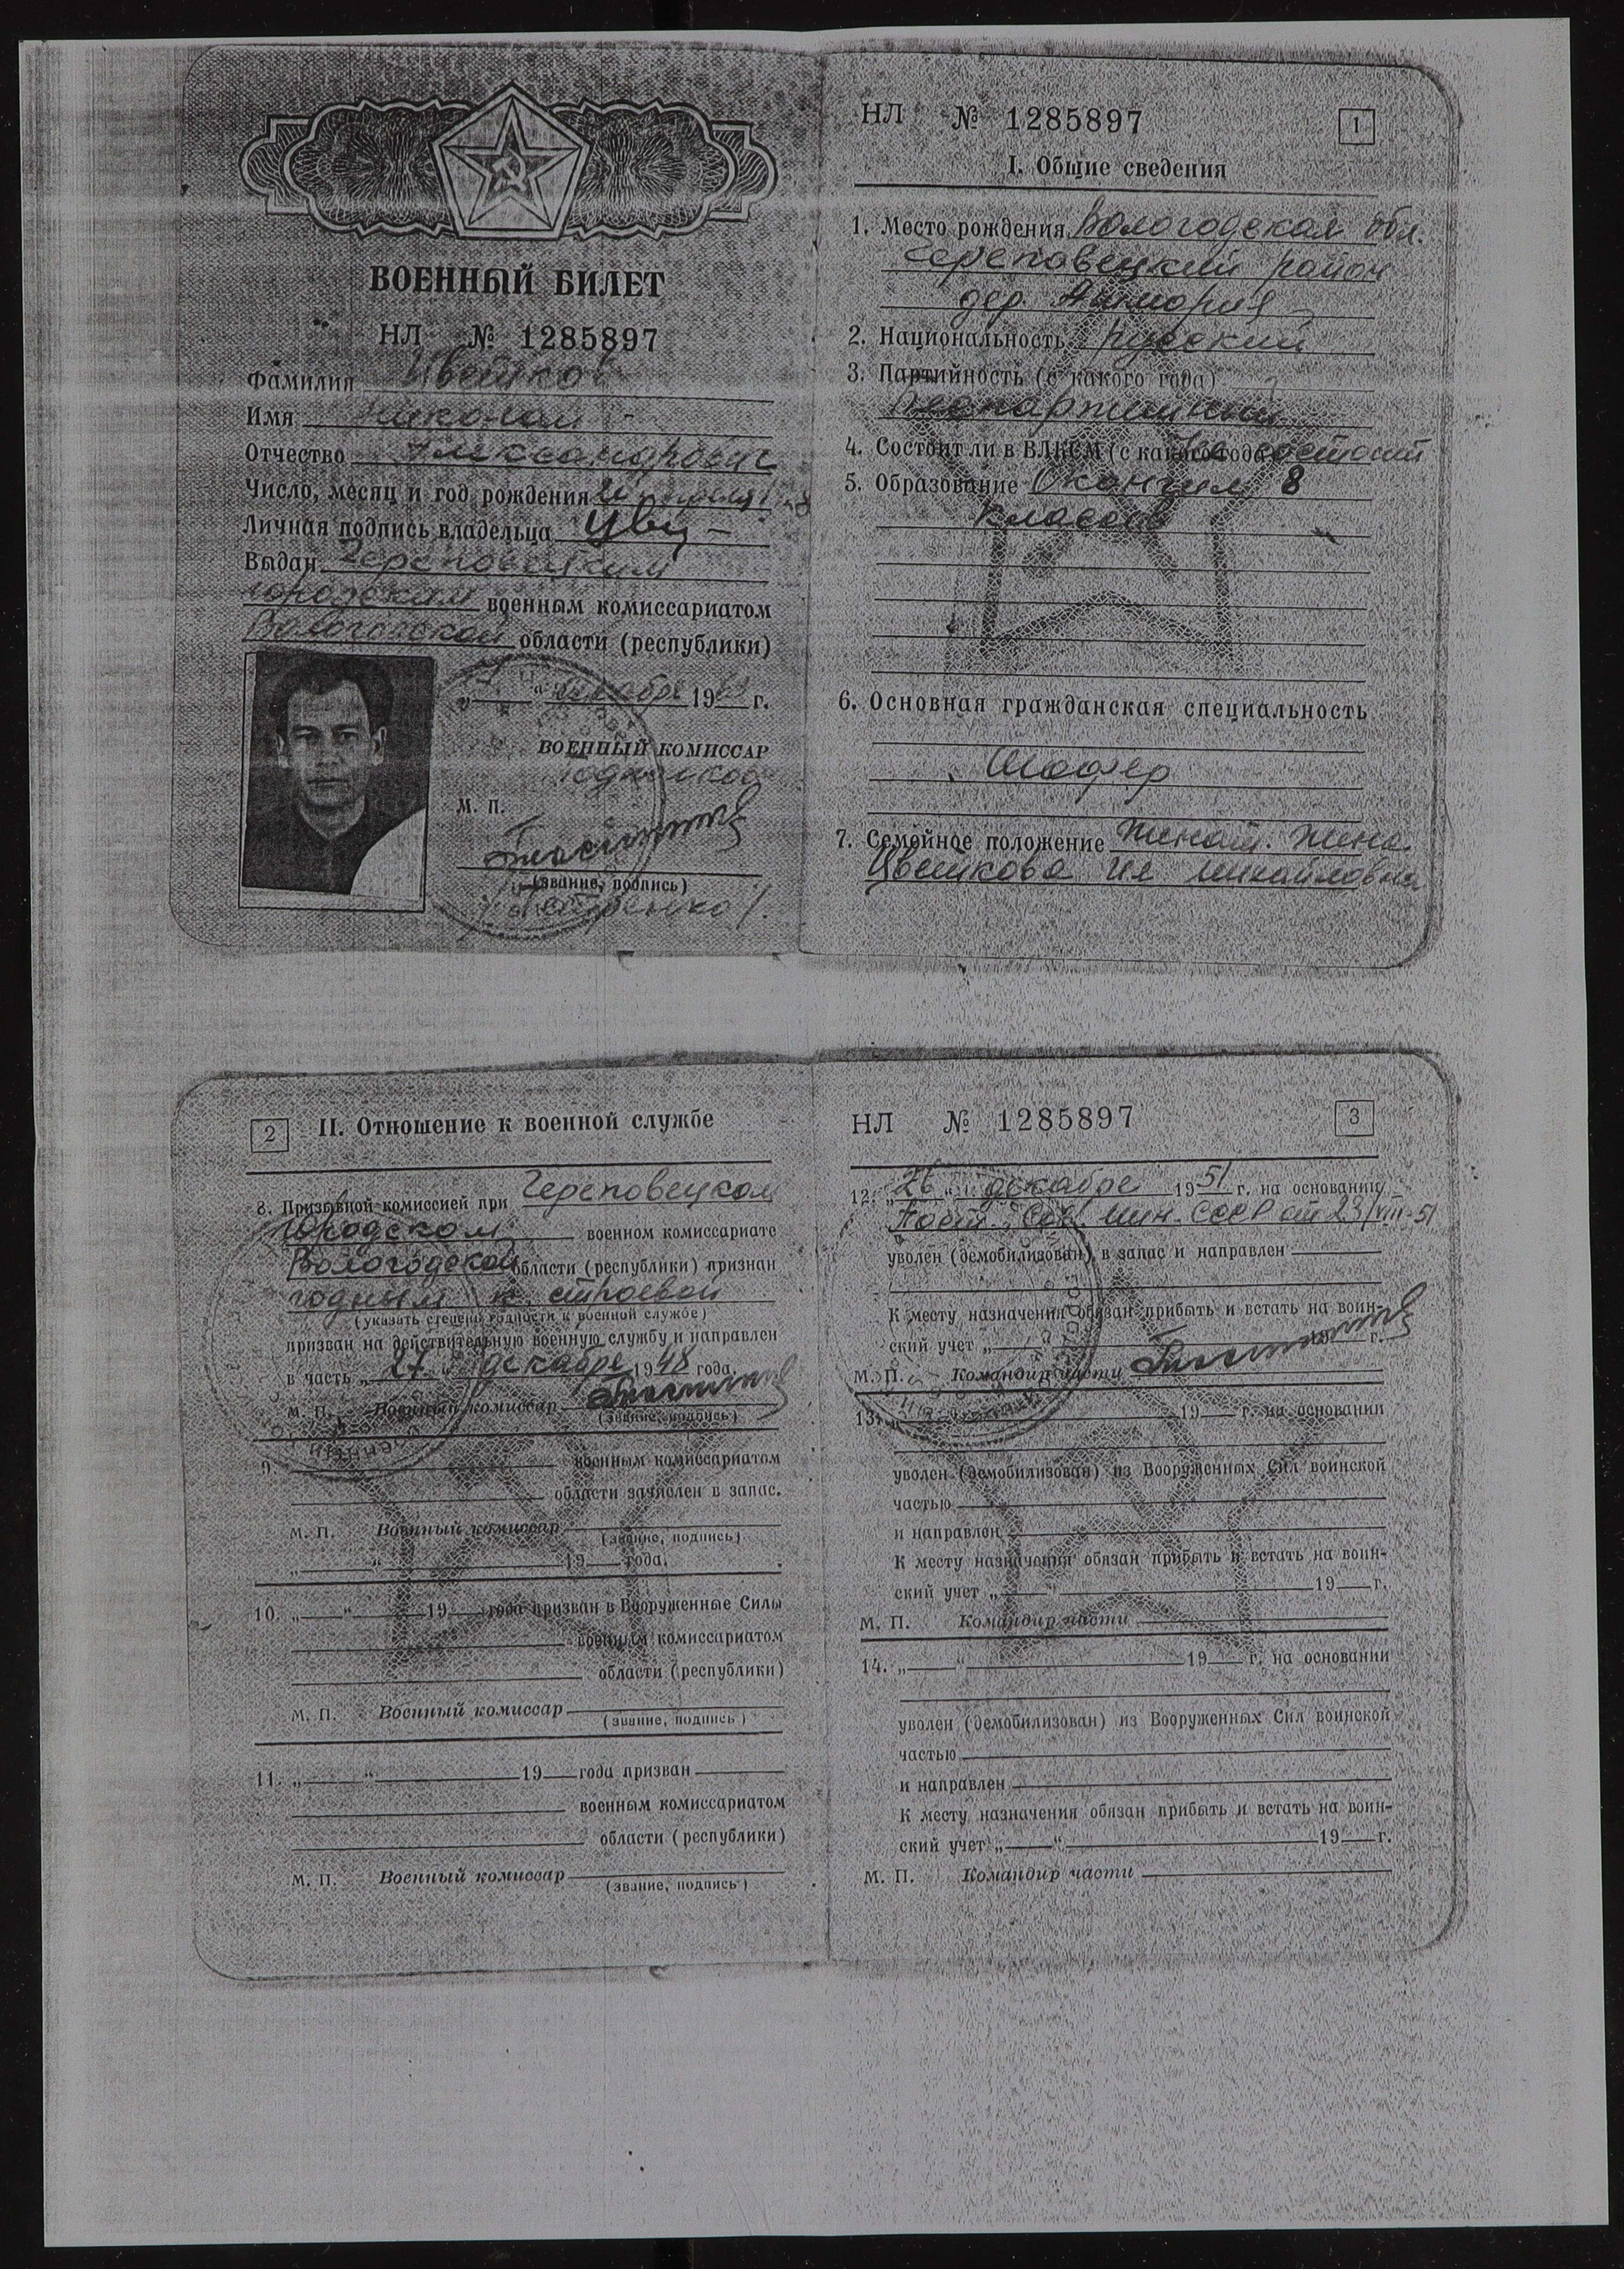 ВОЕННЫЙ БИЛЕТ
НЛ № 1285897
Фамилия Цветков
Имя Николай
Отчество Александрович
Число, месяц и год рождения
Личная подпись владельца Цву
Выдан Череповецким
городским военным комиссариатом
Вологодской области (республики)
" " декабря 19 г.
ВОЕННЫЙ КОМИССАР
М. П.
(звание, подпись)
НЛ № 1285897
1
I. Общие сведения
1. Место рождения Вологодская обл.
Череповецкий район
дер.
2. Национальность русский
3. Партийность (с какого года)
беспартийный
4. Состоит ли в ВЛКСМ (с какого года) не состоит
5. Образование Окончил 8
классов
6. Основная гражданская специальность
Шофер
7. Семейное положение Женат. Жена
Цветкова Ия Михайловна
2
II. Отношение к военной службе
8. Призывной комиссией при Череповецком
городском военном комиссариате
Вологодской области (республики) признан
годным к строевой
(указать степень годности к военной службе)
призван на действительную военную службу и направлен
в часть „27" декабря 1948 года.
М. П. Военный комиссар
(звание, подпись)
9. военным комиссариатом
области зачислен в запас.
М. П. Военный комиссар
(звание, подпись)
„ " 19 года.
10. „ " 19 года призван в Вооруженные Силы
военным комиссариатом
области (республики)
М. П. Военный комиссар
(звание, подпись)
11. „ " 19 года призван
военным комиссариатом
области (республики)
М. П. Военный комиссар
(звание, подпись)
НЛ № 1285897
3
12. „26" декабря 1951 г. на основании
Пост. Сов. Мин. СССР от 23/VIII-51
уволен (демобилизован) в запас и направлен
К месту назначения обязан прибыть и встать на воин-
ский учет „ " 19 г.
М. П. Командир части
13. „ 19 г. на основании
уволен (демобилизован) из Вооруженных Сил воинской
частью
и направлен
К месту назначения обязан прибыть и встать на воин-
ский учет „ " 19 г.
М. П. Командир части
14. „ " 19 г. на основании
уволен (демобилизован) из Вооруженных Сил воинской
частью
и направлен
К месту назначения обязан прибыть и встать на воин-
ский учет „ " 19 г.
М. П. Командир части